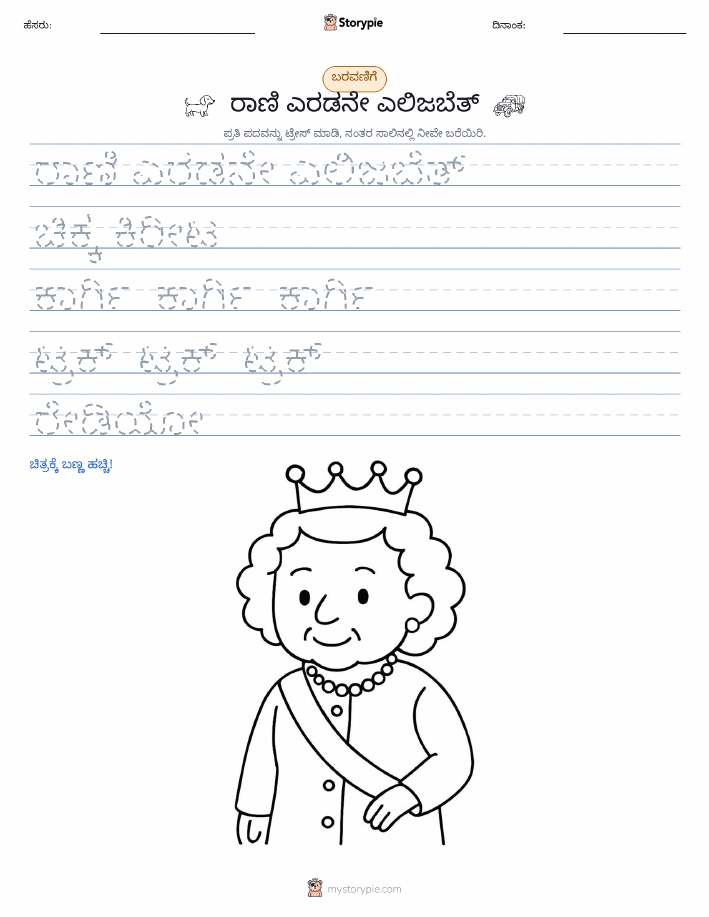 ಹೆಸರು: Storypie ದಿನಾಂಕ:
ಬರವಣಿಗೆ
ರಾಣಿ ಎರಡನೇ ಎಲಿಜಬೆತ್
ಪ್ರತಿ ಪದವನ್ನು ಟ್ರೇಸ್ ಮಾಡಿ, ನಂತರ ಸಾಲಿನಲ್ಲಿ ನೀವೇ ಬರೆಯಿರಿ.
ರಾಣಿ ಎರಡನೇ ಎಲಿಜಬೆತ್
ಚಿಕ್ಕ ಕಿರೀಟ
ಕಾರ್ಗಿ ಕಾರ್ಗಿ ಕಾರ್ಗಿ
ಟ್ರಕ್ ಟ್ರಕ್ ಟ್ರಕ್
ರೇಡಿಯೋ
ಚಿತ್ರಕ್ಕೆ ಬಣ್ಣ ಹಚ್ಚಿ!
mystorypie.com